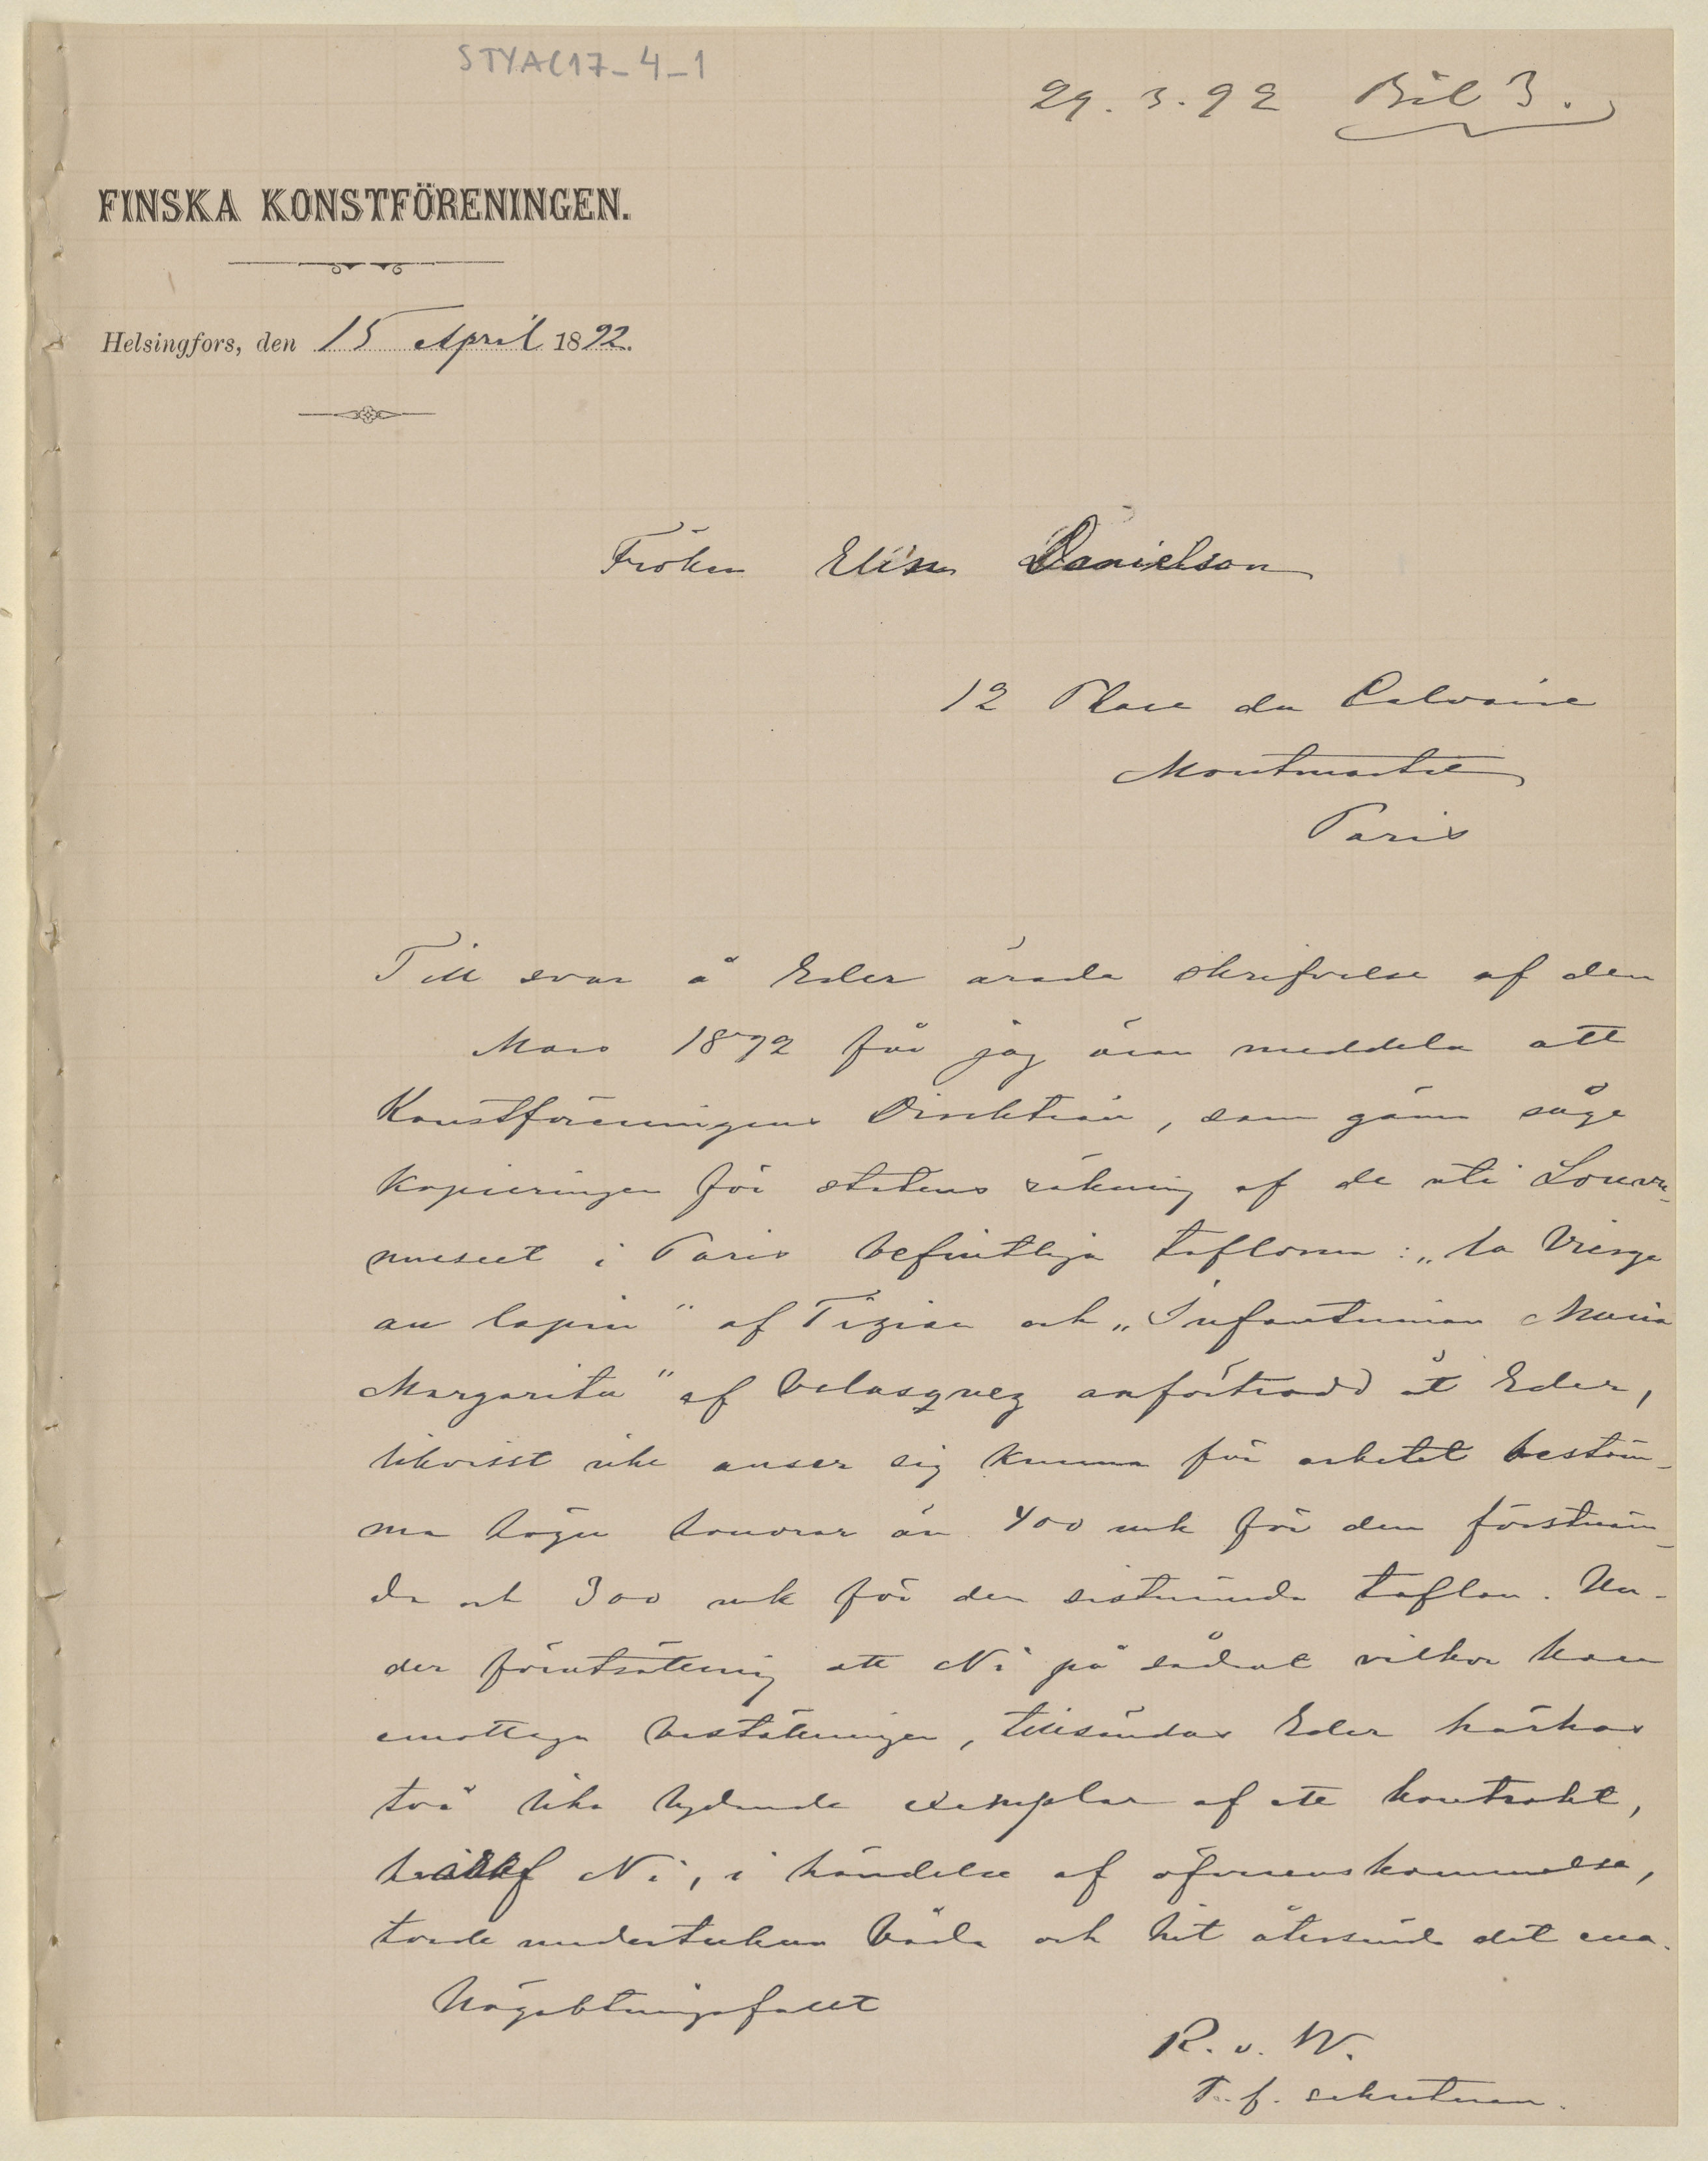 STYAC17-4-1
29. 3. 92 Bil 3.
FINSKA KONSTFÖRENINGEN.
Helsingfors, den 15 April 1892.
Fröken Elin Danielson
12 Place du Calvaire
Montmartre
Paris
Till svar å Eder ärade skrifvelse af den
Mars 1892 får jag äran meddela att
Konstföreningens Direktion, som gärna såge
kopieringen för statens räkning af de uti Louvre-
museet i Paris befintliga taflorna: „la Vierge
au lapin" af Tizian och „Infantinnan Maria
Margarita" af Velasquez anförtrodd åt Eder,
likvisst icke anser sig kunna för arbetet bestäm-
ma högre honorar än 400 mk för den förstnäm-
da och 300 mk för den sistnämnda taflan. Un-
der förutsättning att Ni på sådant vilkor kan
emottaga beställningen, tillsändas Eder härhos
två lika lydande exemplar af ett kontrakt,
hvaraf Ni, i händelse af öfverenskommelse,
torde underteckna båda och hit återsända det ena.
Högaktningsfullt
R. v. W.
T. f. sekreterare.